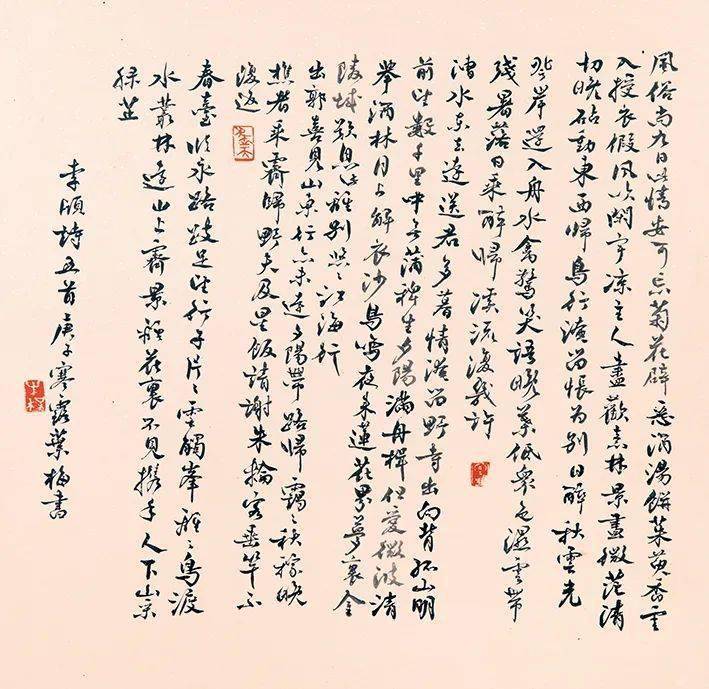 風俗尚九日此情安可忘菊花辟惡酒湯餅茱萸香雲
入授衣假風吹閑宇涼主人盡歡意林景盡微茫清
切晚砧動東西歸鳥行淹留悵為別日醉秋雲光
登岸還入舟水禽驚笑語晚葉低衆色濕雲帶
殘暑落日乘醉歸溪流復幾許
漕水東去遠送君多暮情淹留野寺出向背孤山明
前望數千里中無蒲稗生夕陽滿舟楫但愛微波清
舉酒林月上解衣沙鳥鳴夜來蓮花界夢裏金
陵城歎息此離別悠々江海行
出郭喜見山東行亦未遠夕陽帶路歸靄々秋稼晚
樵者乘霽歸野夫及星飯請謝朱輪客垂竿不
復返
春臺臨永路跂足望行子片々雲觸峯離々鳥渡
水叢林遠山上霽景雜花裏不見攜手人下山采
綠芷
李頎詩五首庚子寒露葉梅書